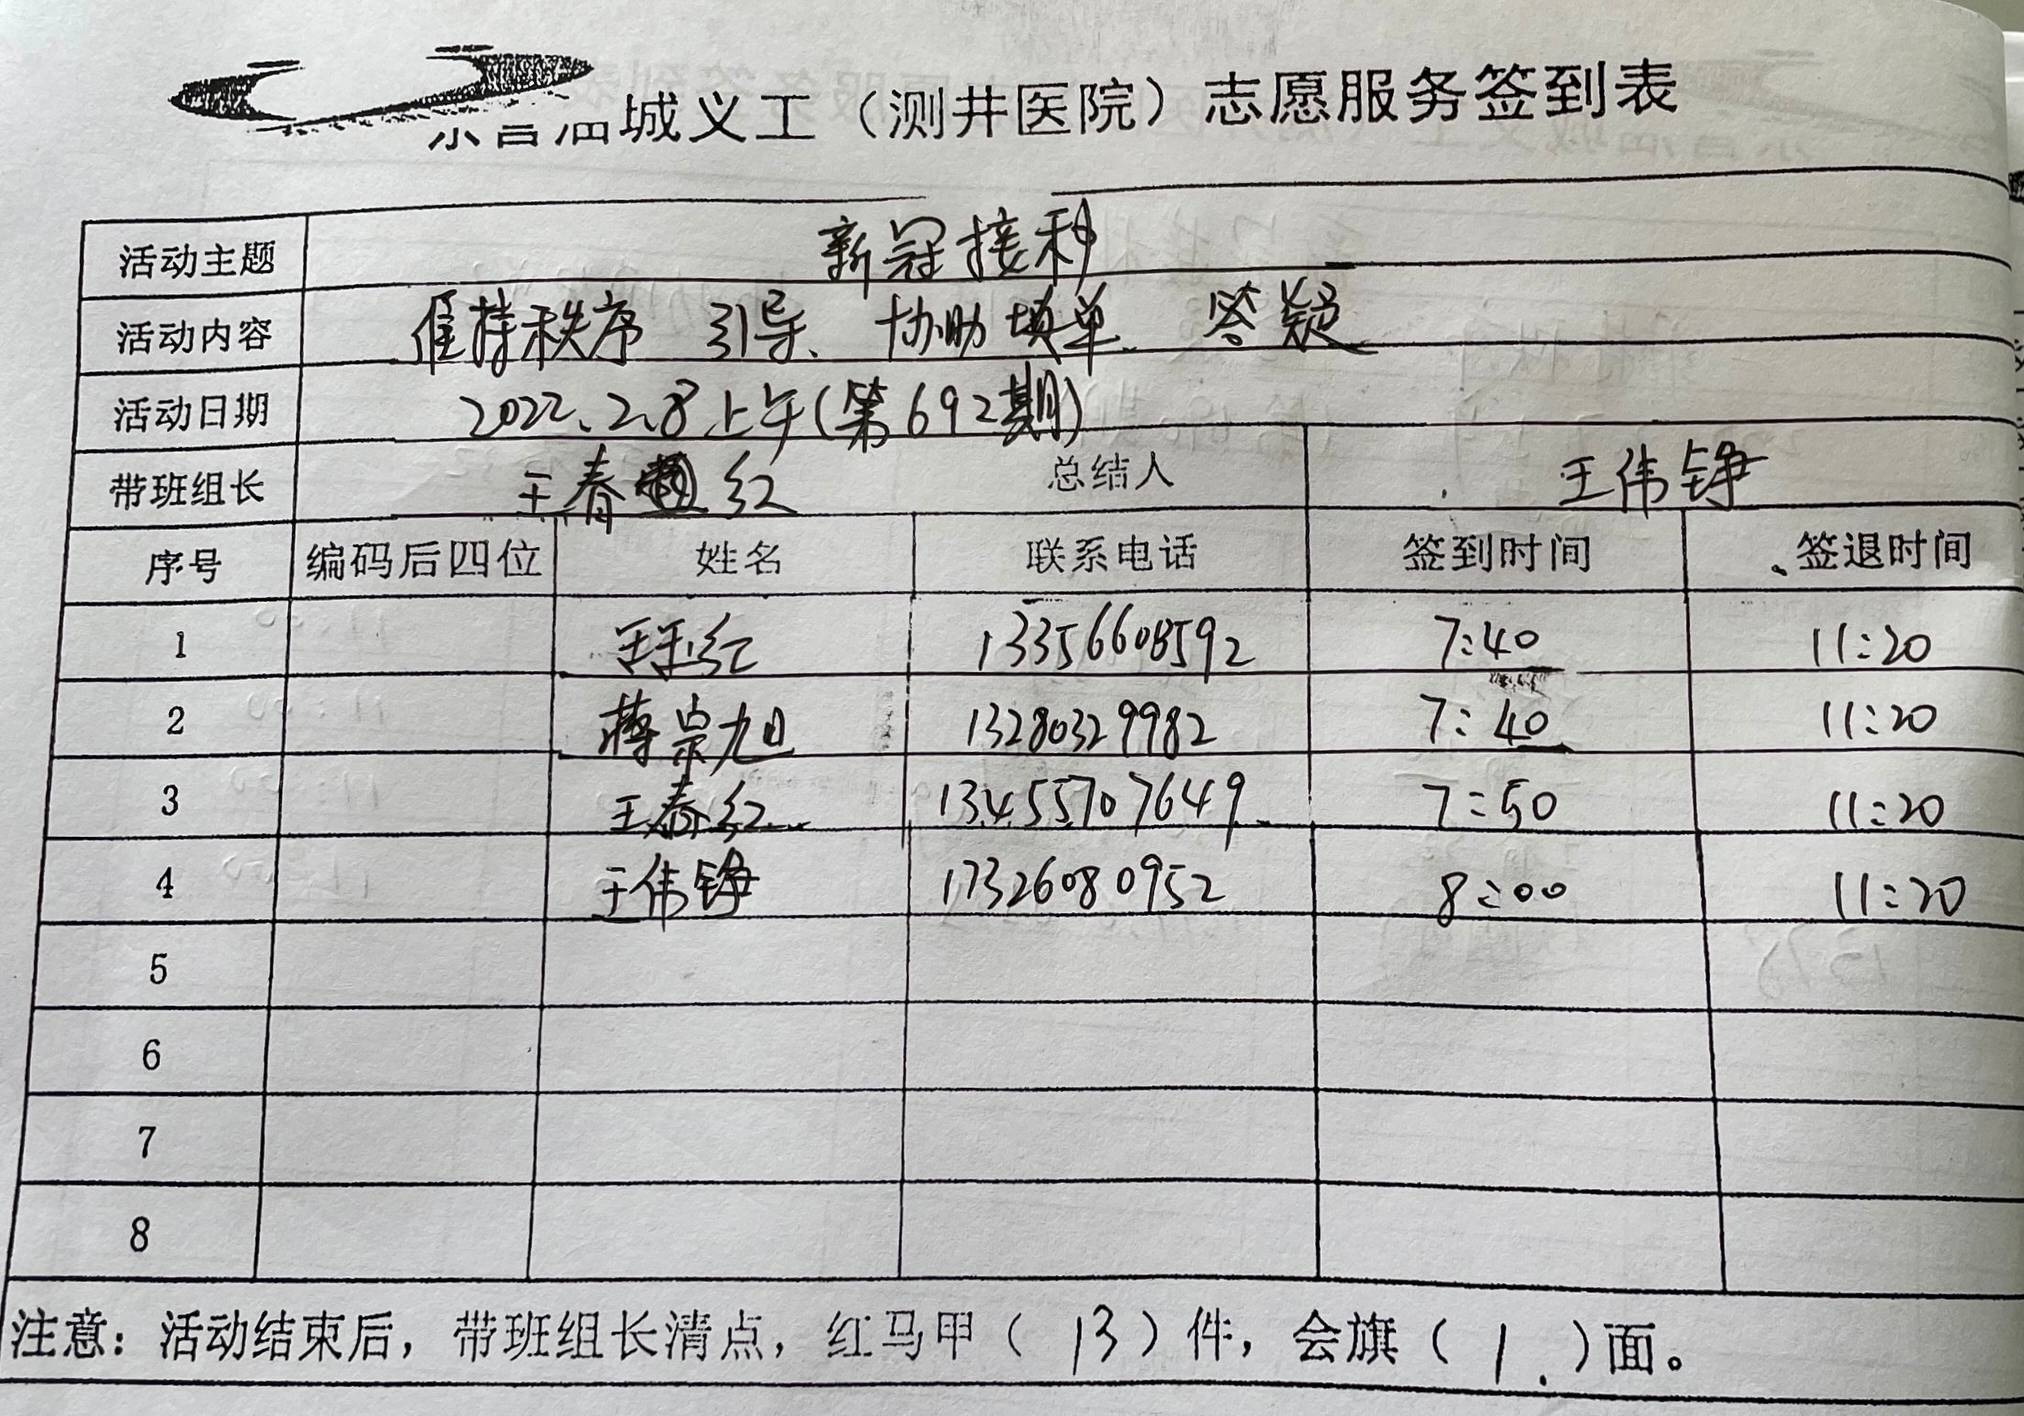 东营油城义工（测井医院）志愿服务签到表
活动主题 新冠接种
活动内容 维持秩序 引导、协助填单、答疑
活动日期 2022.2.8上午(第692期)
带班组长 王春红 总结人 王伟铮
序号 编码后四位 姓名 联系电话 签到时间 签退时间
1 王红 13356608592 7:40 11:20
2 蒋宗旭 13280329982 7:40 11:20
3 王春红 13455707649 7:50 11:20
4 王伟铮 17326080952 8:00 11:20
5
6
7
8
注意：活动结束后，带班组长清点，红马甲（13）件，会旗（1.）面。